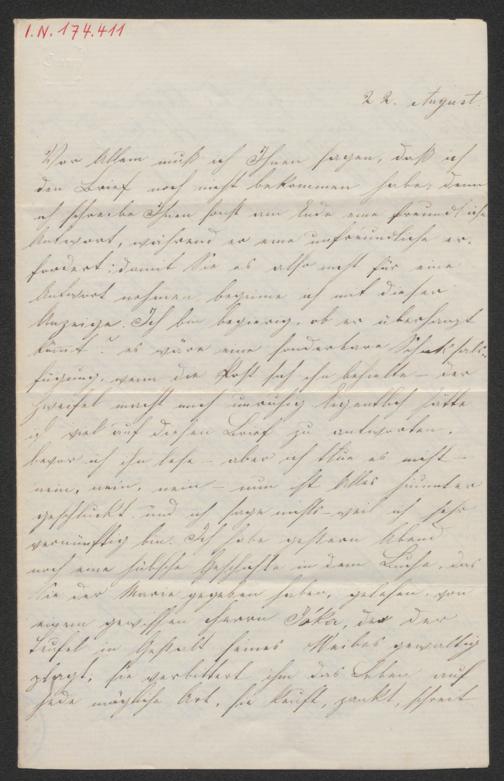 I.N. 174.411
22. August.
Vor Allem muß ich Ihnen sagen, daß ich
den Brief noch nicht bekommen habe, denn
ich schreibe Ihnen sonst am Ende eine freundliche
Antwort, während er eine unfreundliche er-
fordert; damit Sie es also nicht für eine
Antwort nehmen beginne ich mit dieser
Anzeige. Ich bin begierig, ob er überhaupt
kömmt? es wäre eine sonderbare Schicksals-
fügung, wenn die Post sich ihn behielte – der
Zweifel macht mich unruhig. Eigentlich hätte
ich viel auf diesen Brief zu antworten,
bevor ich ihn lese – aber ich thue es nicht –
nein, nein, nein – nun ist Alles hinunter
geschluckt und ich sage nichts – weil ich sehr
vernünftig bin. Ich habe gestern Abend
noch eine hübsche Geschichte in dem Buche, das
Sie der Marie gegeben haben, gelesen, von
einem gewissen Herrn Jóka, den der
Teufel in Gestalt seines Weibes gewaltig
plagt, sie verbittert ihm das Leben auf
jede mögliche Art, sie keift, zankt, schreit